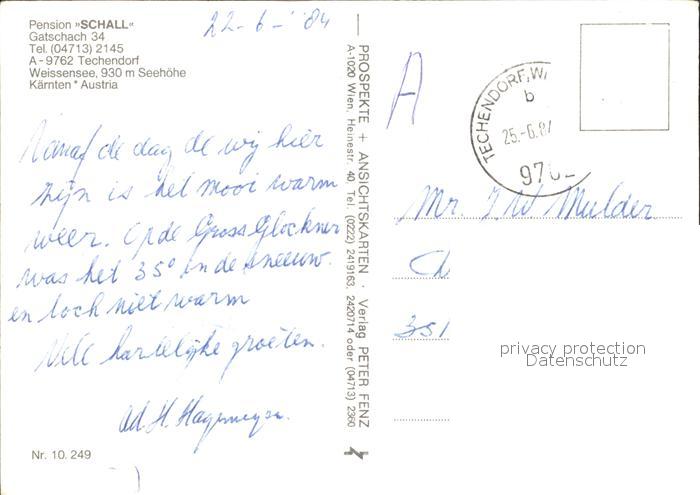 Pension »SCHALL«
Gatschach 34
Tel. (04713) 2145
A - 9762 Techendorf
Weissensee, 930 m Seehöhe
Kärnten * Austria
22-6-'84
Vanaf de dag de wij hier
zijn is het mooi warm
weer. Op de Gross Glockner
was het 35° in de sneeuw.
en toch niet warm
Vele hartelijke groeten.
Ad. H. Hagemeyer.
Nr. 10. 249
PROSPEKTE + ANSICHTSKARTEN · Verlag PETER FENZ
A-1020 Wien, Heinestr. 40, Tel. (0222) 2419163, 2420714 oder (04713) 2360
A
TECHENDORF, W
b
25.-6.8
97
Mr. Mulder
351
privacy protection
Datenschutz